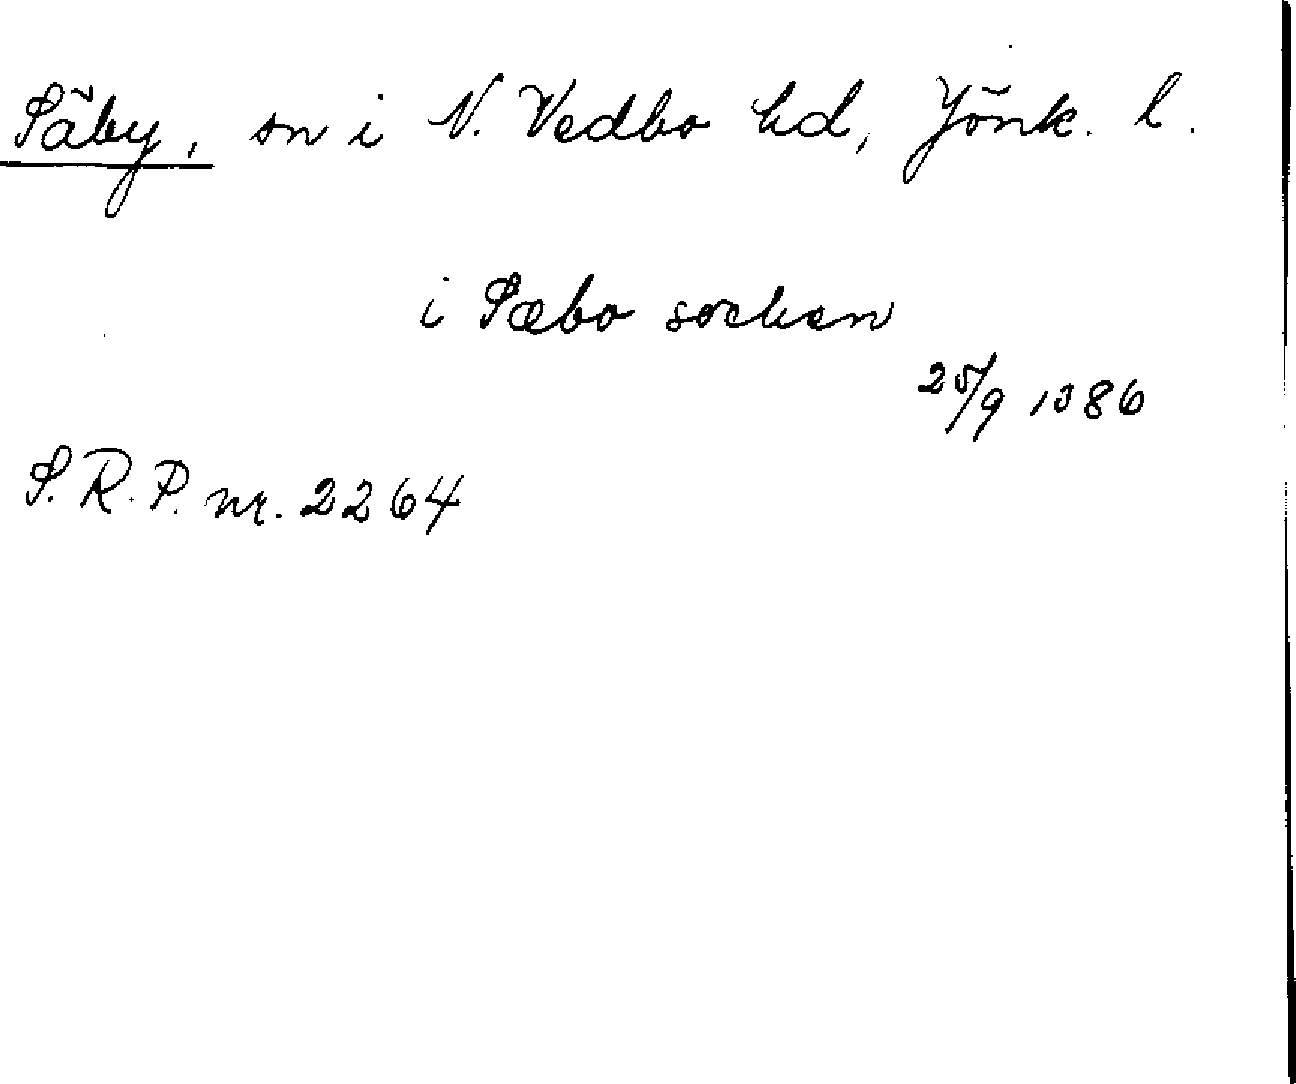 Säby, sn i N. Vedbo hd, Jönk. l.
i Sæbo sochen
25/9 1386
S. R. P. nr. 2264